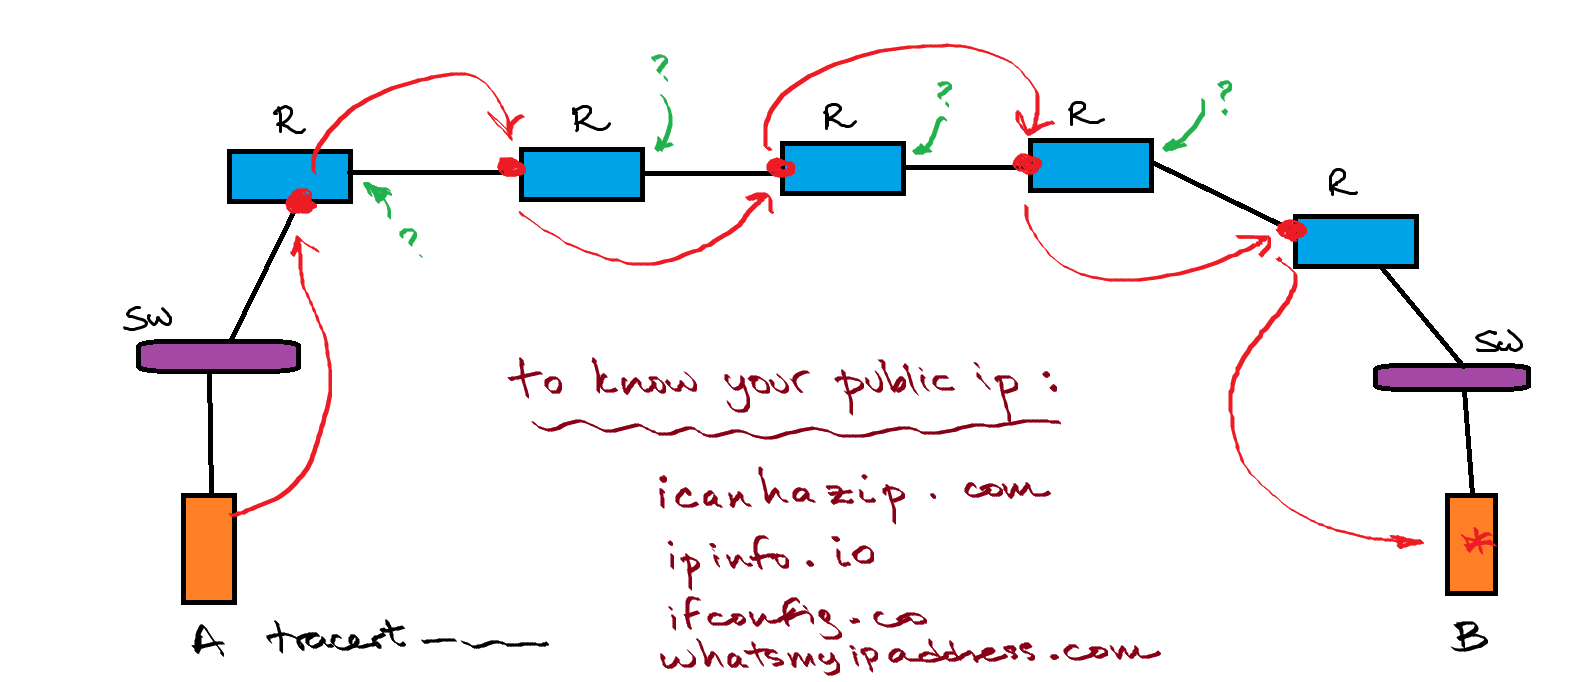 ?
?
?
R
R
R
R
R
?
SW
SW
to know your public ip :
icanhazip . com
ipinfo . io
ifconfig . co
A tracert
whatsmyipaddress.com
B